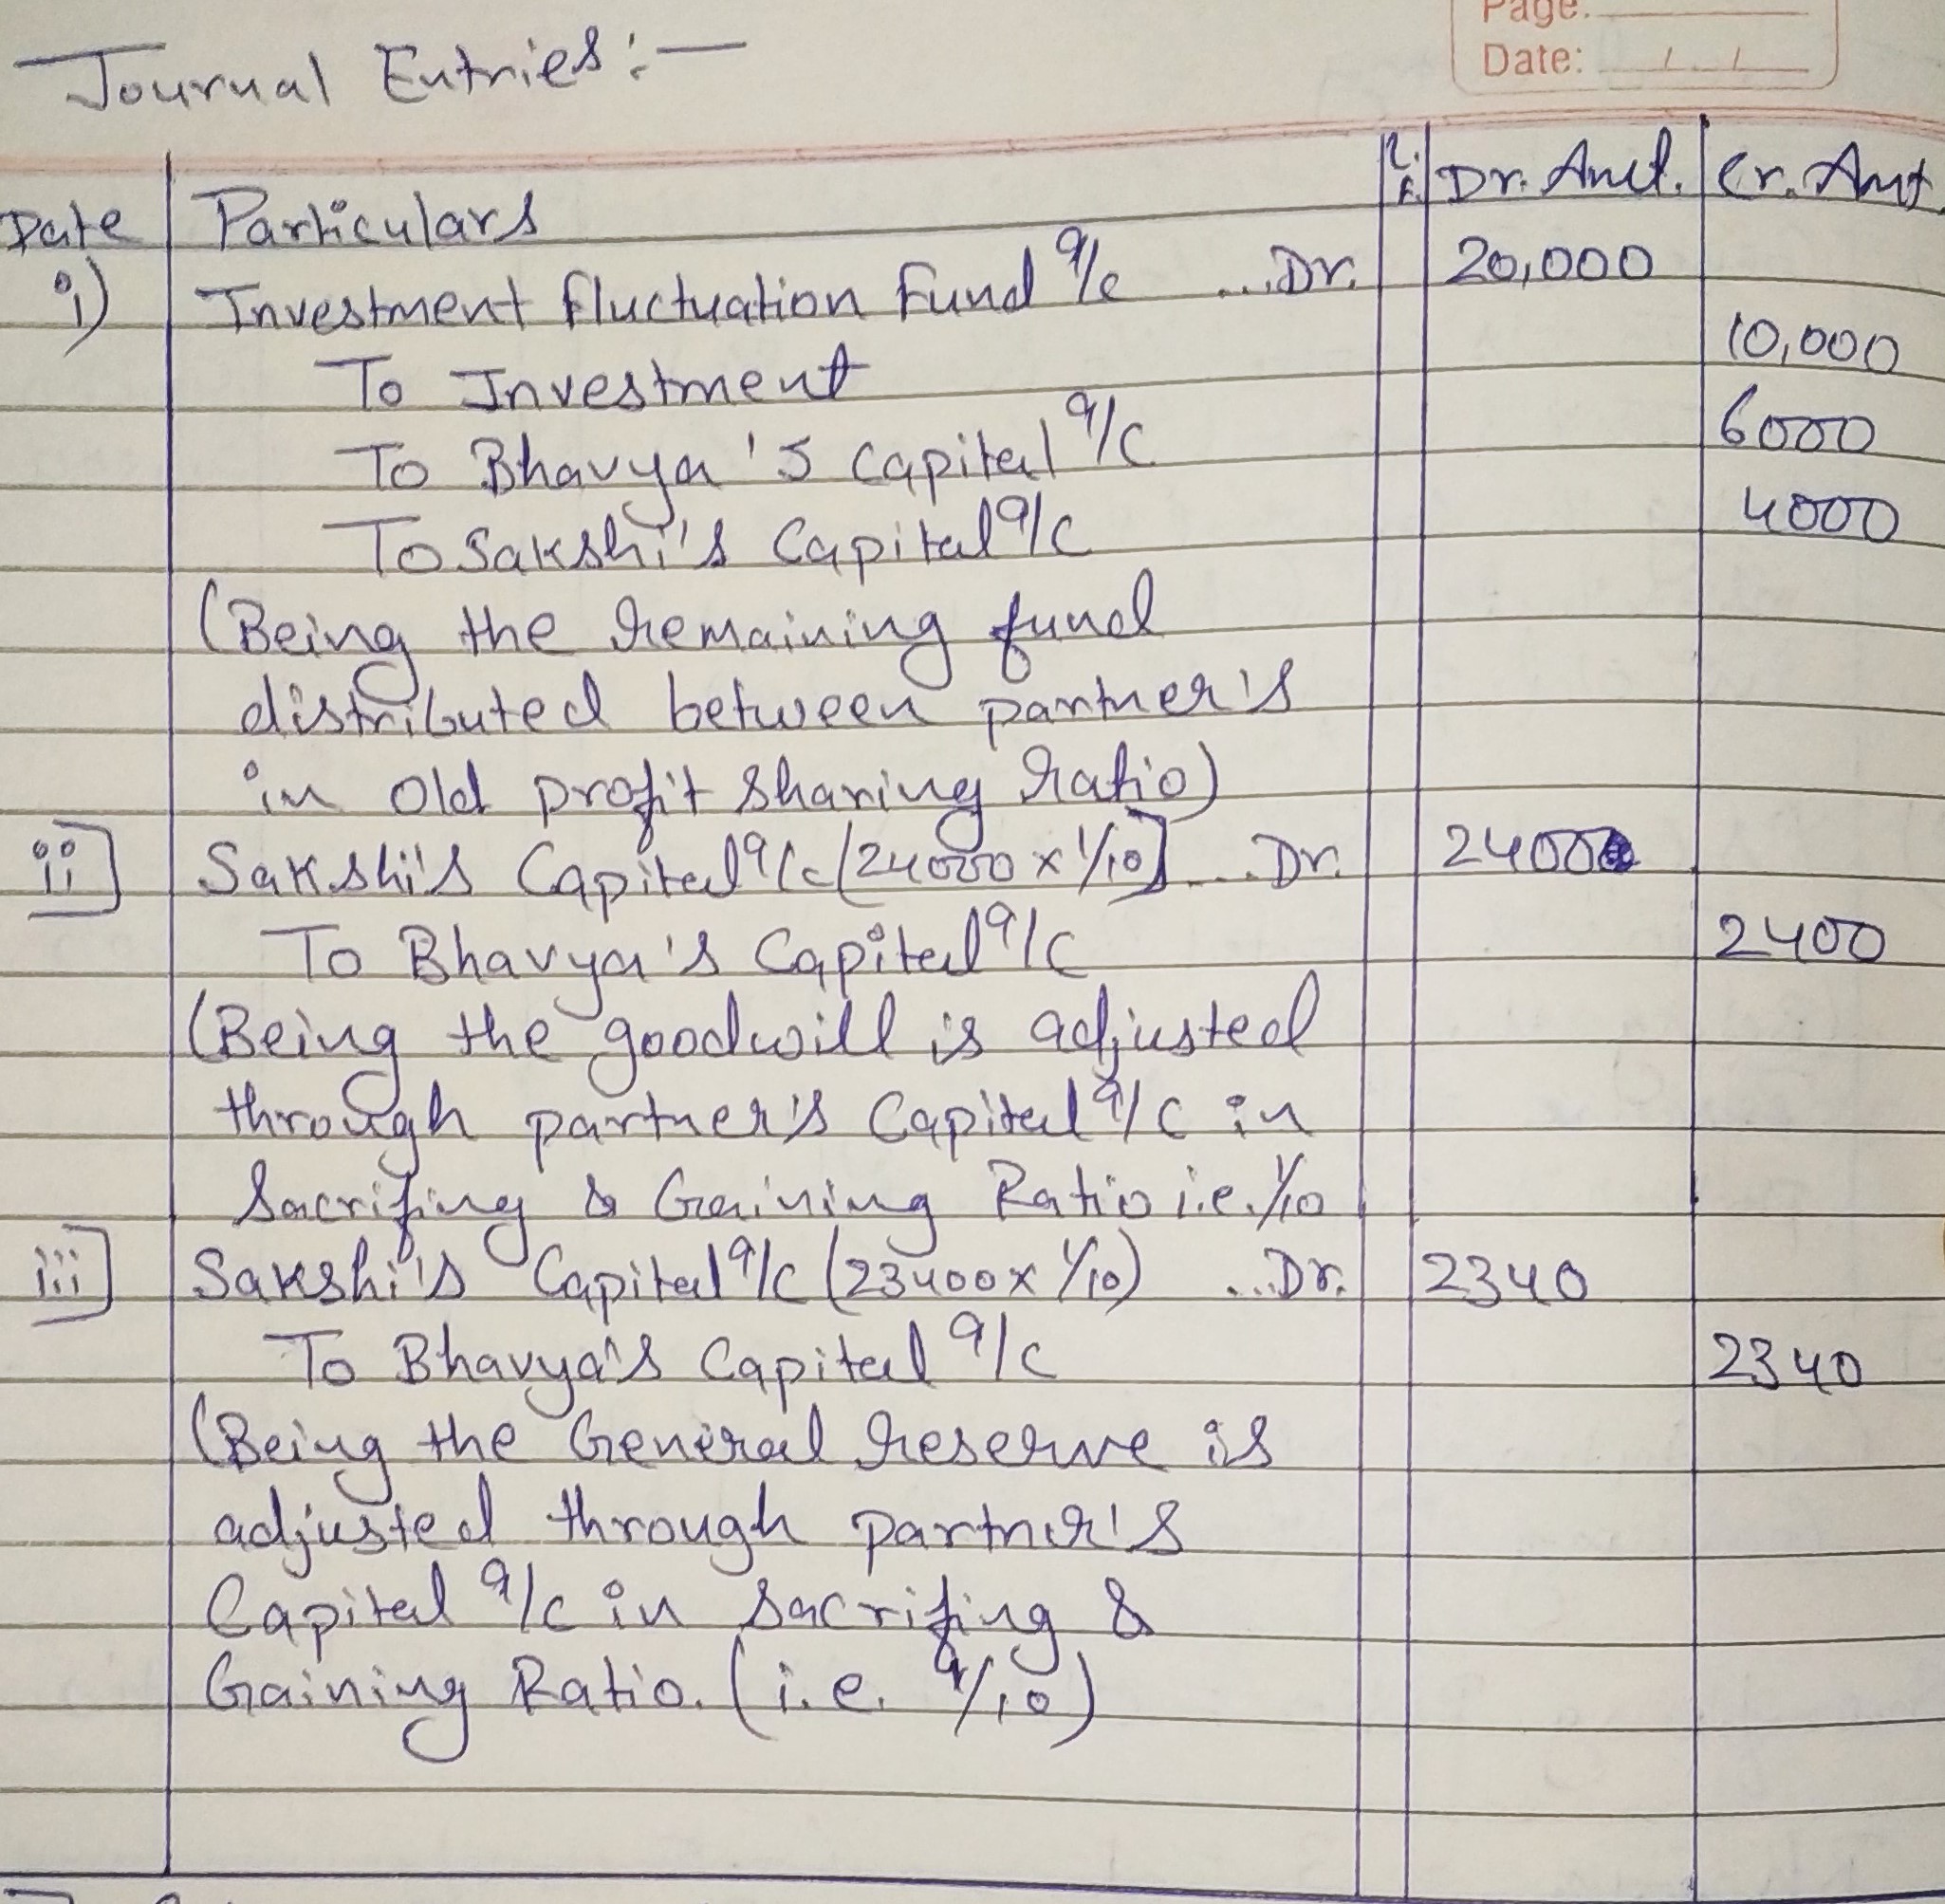 Page.
Date: / /
Journal Entries:-
Date Particulars L.F. Dr. Amt. Cr. Amt.
i) Investment fluctuation Fund a/c ...Dr. 20,000
To Investment 10,000
To Bhavya's Capital a/c 6000
To Sakshi's Capital a/c 4000
(Being the remaining fund
distributed between partner's
in old profit sharing ratio)
ii] Sakshi's Capital a/c [24000 x 1/10] ...Dr. 2400
To Bhavya's Capital a/c 2400
(Being the goodwill is adjusted
through partner's Capital a/c in
Sacrifing & Gaining Ratio i.e. 1/10
iii] Sakshi's Capital a/c (23400 x 1/10) ...Dr. 2340
To Bhavya's Capital a/c 2340
(Being the General reserve is
adjusted through partner's
Capital a/c in sacrifing &
Gaining Ratio. (i.e. 1/10)